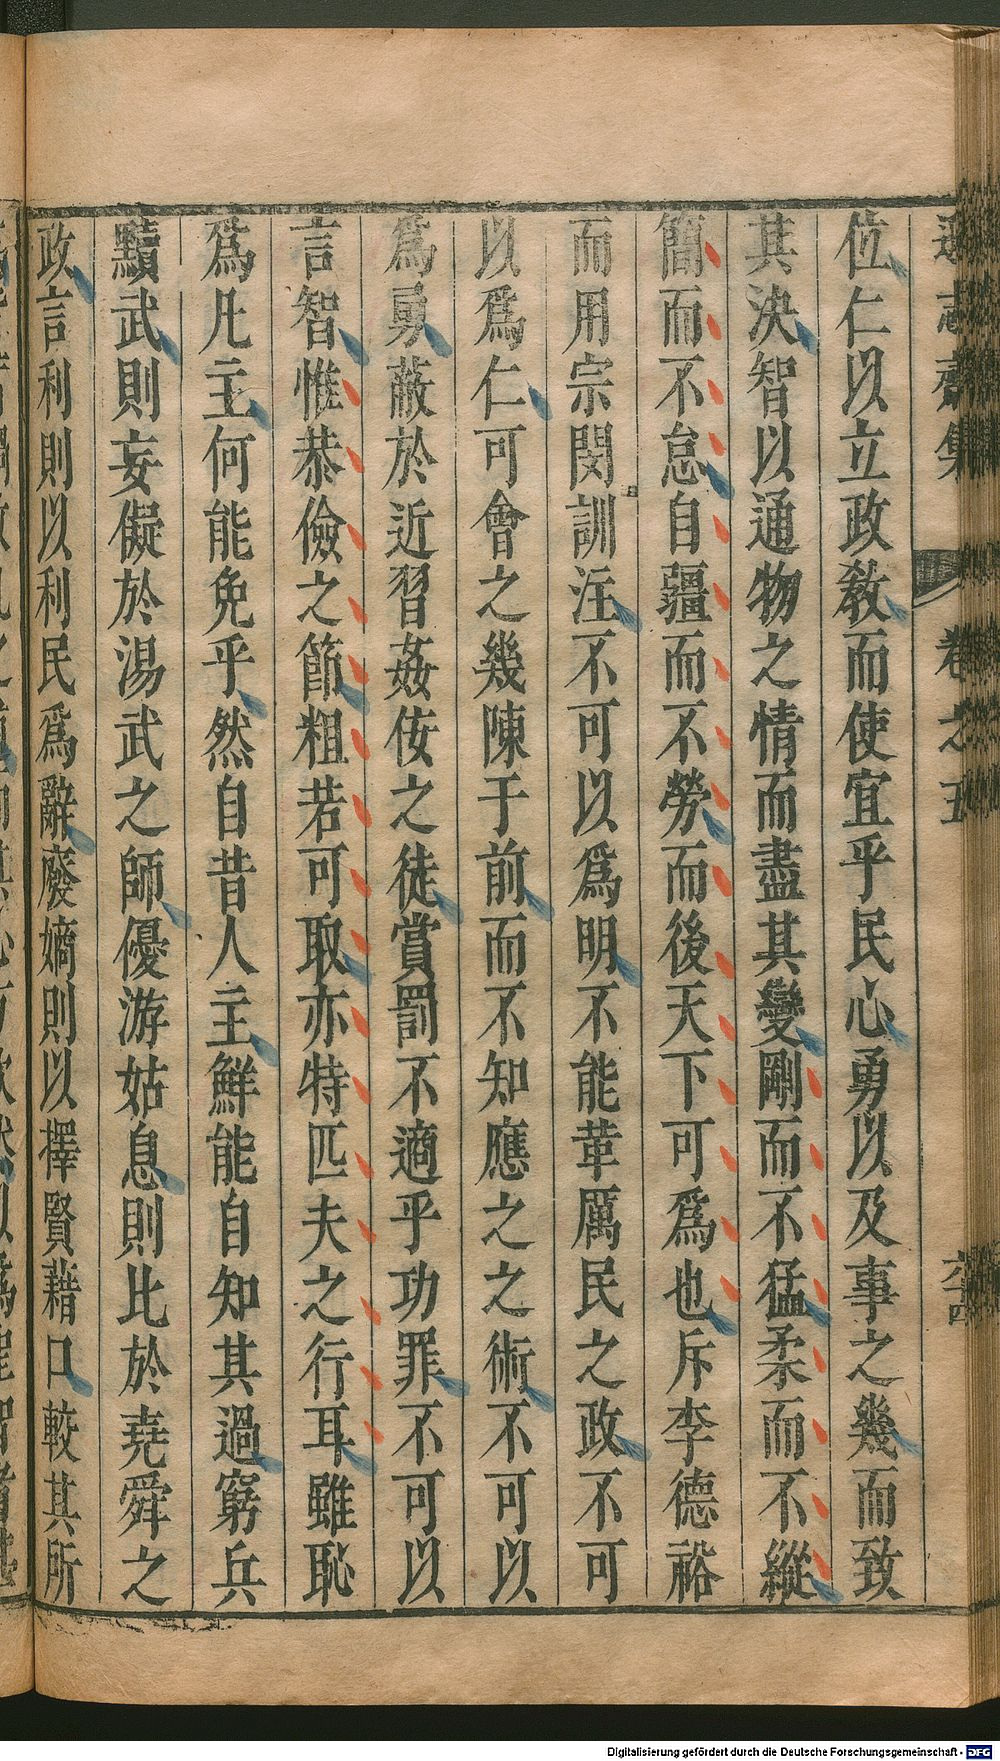 遜志齋集 卷之五 六十四
位仁以立政敎而使宜乎民心勇以及事之幾而致
其決智以通物之情而盡其變剛而不猛柔而不縱
簡而不怠自疆而不勞而後天下可爲也斥李德裕
而用宗閔訓注不可以爲明不能革厲民之政不可
以爲仁可會之幾陳于前而不知應之之術不可以
爲勇蔽於近習姦佞之徒賞罰不適乎功罪不可以
言智惟恭儉之節粗若可取亦特匹夫之行耳雖恥
爲凡主何能免乎然自昔人主鮮能自知其過窮兵
黷武則妄儗於湯武之師優游姑息則比於堯舜之
政言利則以利民爲辭廢嫡則以擇賢藉口較其所
Digitalisierung gefördert durch die Deutsche Forschungsgemeinschaft - DFG